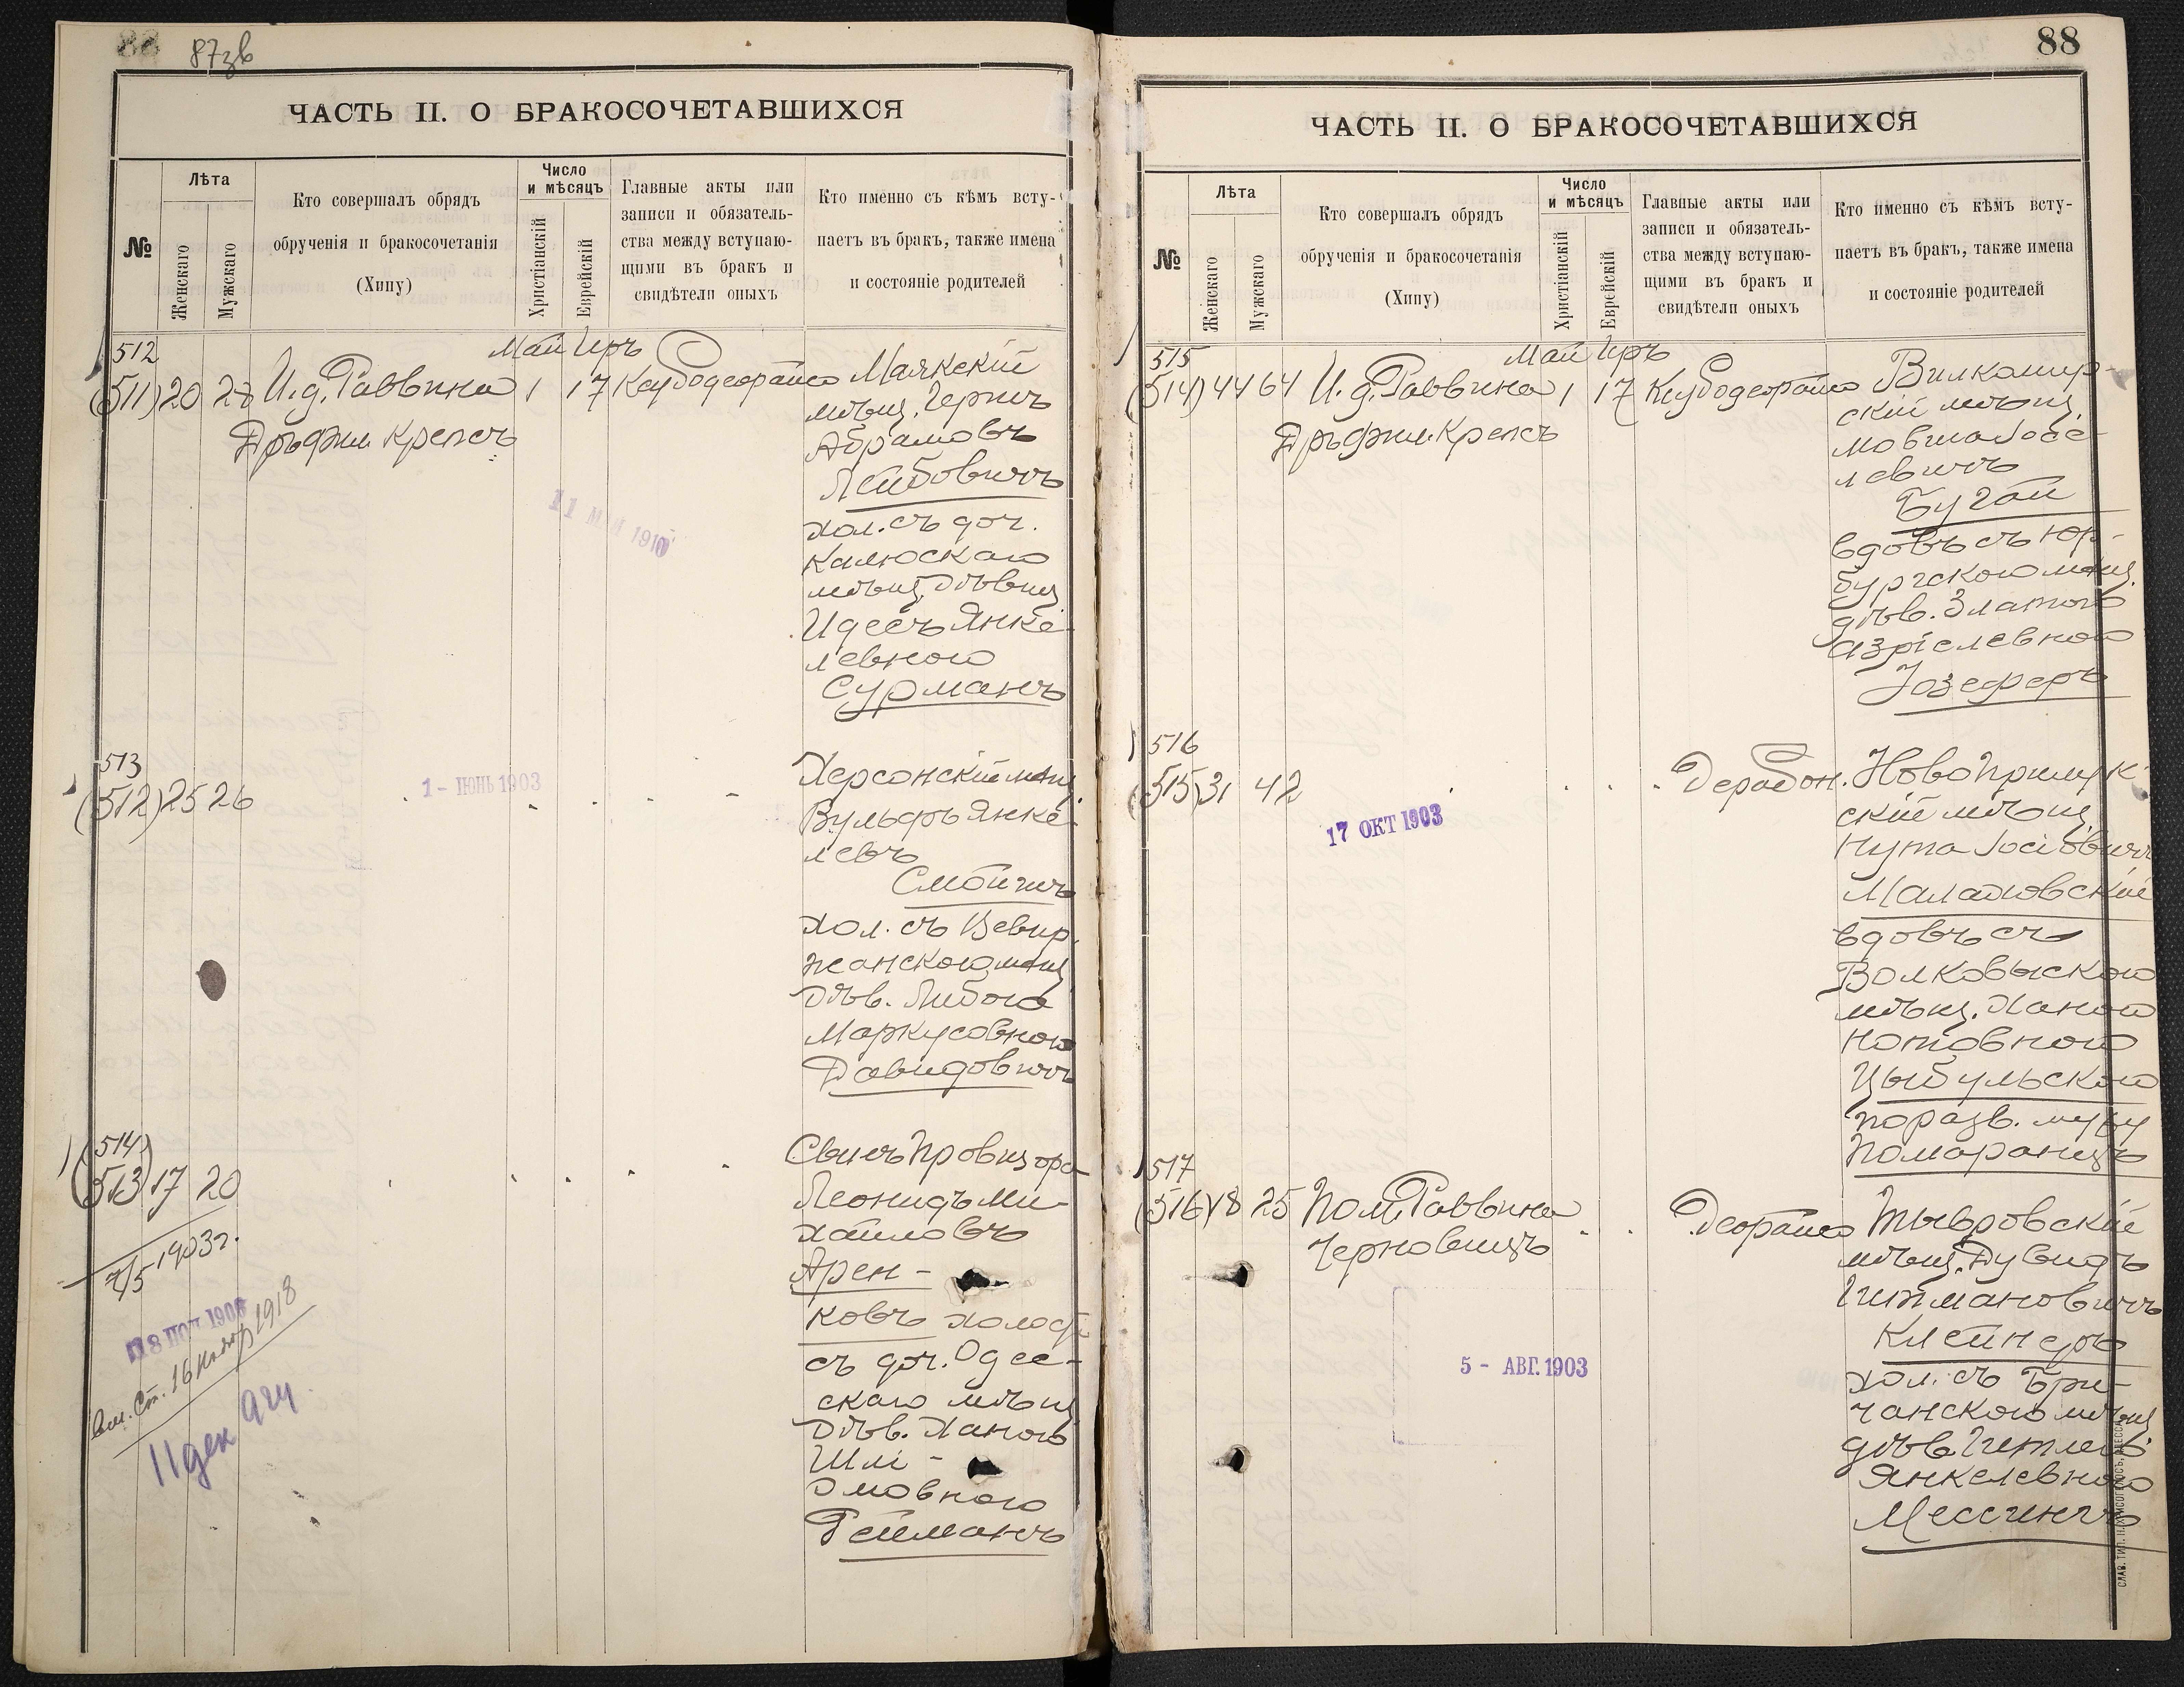 87зв
ЧАСТЬ II. О БРАКОСОЧЕТАВШИХСЯ
№
Лѣта
Женскаго
Мужскаго
Кто совершалъ обрядъ
обрученія и бракосочетанія
(Хипу)
Число
и мѣсяцъ
Христіанскій
Еврейскій
Главные акты или
записи и обязатель-
ства между вступаю-
щими въ бракъ и
свидѣтели оныхъ
Кто именно съ кѣмъ всту-
паетъ въ бракъ, также имена
и состояніе родителей
512
(511) 20 28 И. д. Раввина
Дръ Фил. Крепсъ
Май Иръ
1 17
Маякскій
мѣщ. Гершъ
Абрамовъ
Лейбовичъ
хол. съ доч.
Калюскаго
мѣщ. дѣвиц
Идесъ Янке-
левною
Сурманъ
11 МАЙ 1910
513
(512) 25 26
1 - ИЮНЬ 1903
Херсонскій мѣщ.
Вульфъ Янке-
левъ
хол. съ
дѣв. Либою
Маркусовною
Давидовичъ
(514)
(513) 17 20
Сынъ Провизора
Леонидъ Ми-
хайловъ
Арен-
ковъ холост
съ доч. Одес-
скаго мѣщ
дѣв. Ханою
Шлі-
омовною
Рейманъ
2/5 1903г.
Вып. Ст. 16 1918
11 дек 924
88
ЧАСТЬ II. О БРАКОСОЧЕТАВШИХСЯ
№
Лѣта
Женскаго
Мужскаго
Кто совершалъ обрядъ
обрученія и бракосочетанія
(Хипу)
Число
и мѣсяцъ
Христіанскій
Еврейскій
Главные акты или
записи и обязатель-
ства между вступаю-
щими въ бракъ и
свидѣтели оныхъ
Кто именно съ кѣмъ всту-
паетъ въ бракъ, также имена
и состояніе родителей
515
(514) 44 64 И. д. Раввина
Дръ Фил. Крепсъ
Май Иръ
1 17
Вилкомир-
скій мѣщ.
Мовша Іосе-
левичъ
Бугай
вдовъ съ Юр-
бургскою мѣщ.
дѣв. Златою
Азріелевною
Іозеферъ
516
(515) 31 42
17 ОКТ 1903
Дерабон.
НовоПрилук-
скій мѣщ
Нута Іосіовичъ
Малаховскій
вдовъ съ
Волковыскою
мѣщ. Ханою
Нотовною
Цыбульскою
по разв. мужу
Померанцъ
517
(516) 18 25 Пом. Раввина
Черновицъ
Деорайсо
5 - АВГ. 1903
Тывровскій
мѣщ. Дувидъ
Гитмановичъ
Клейнеръ
хол. съ Бри-
чанскою мѣщ
дѣв. Гитлею
Янкелевною
Мессингъ